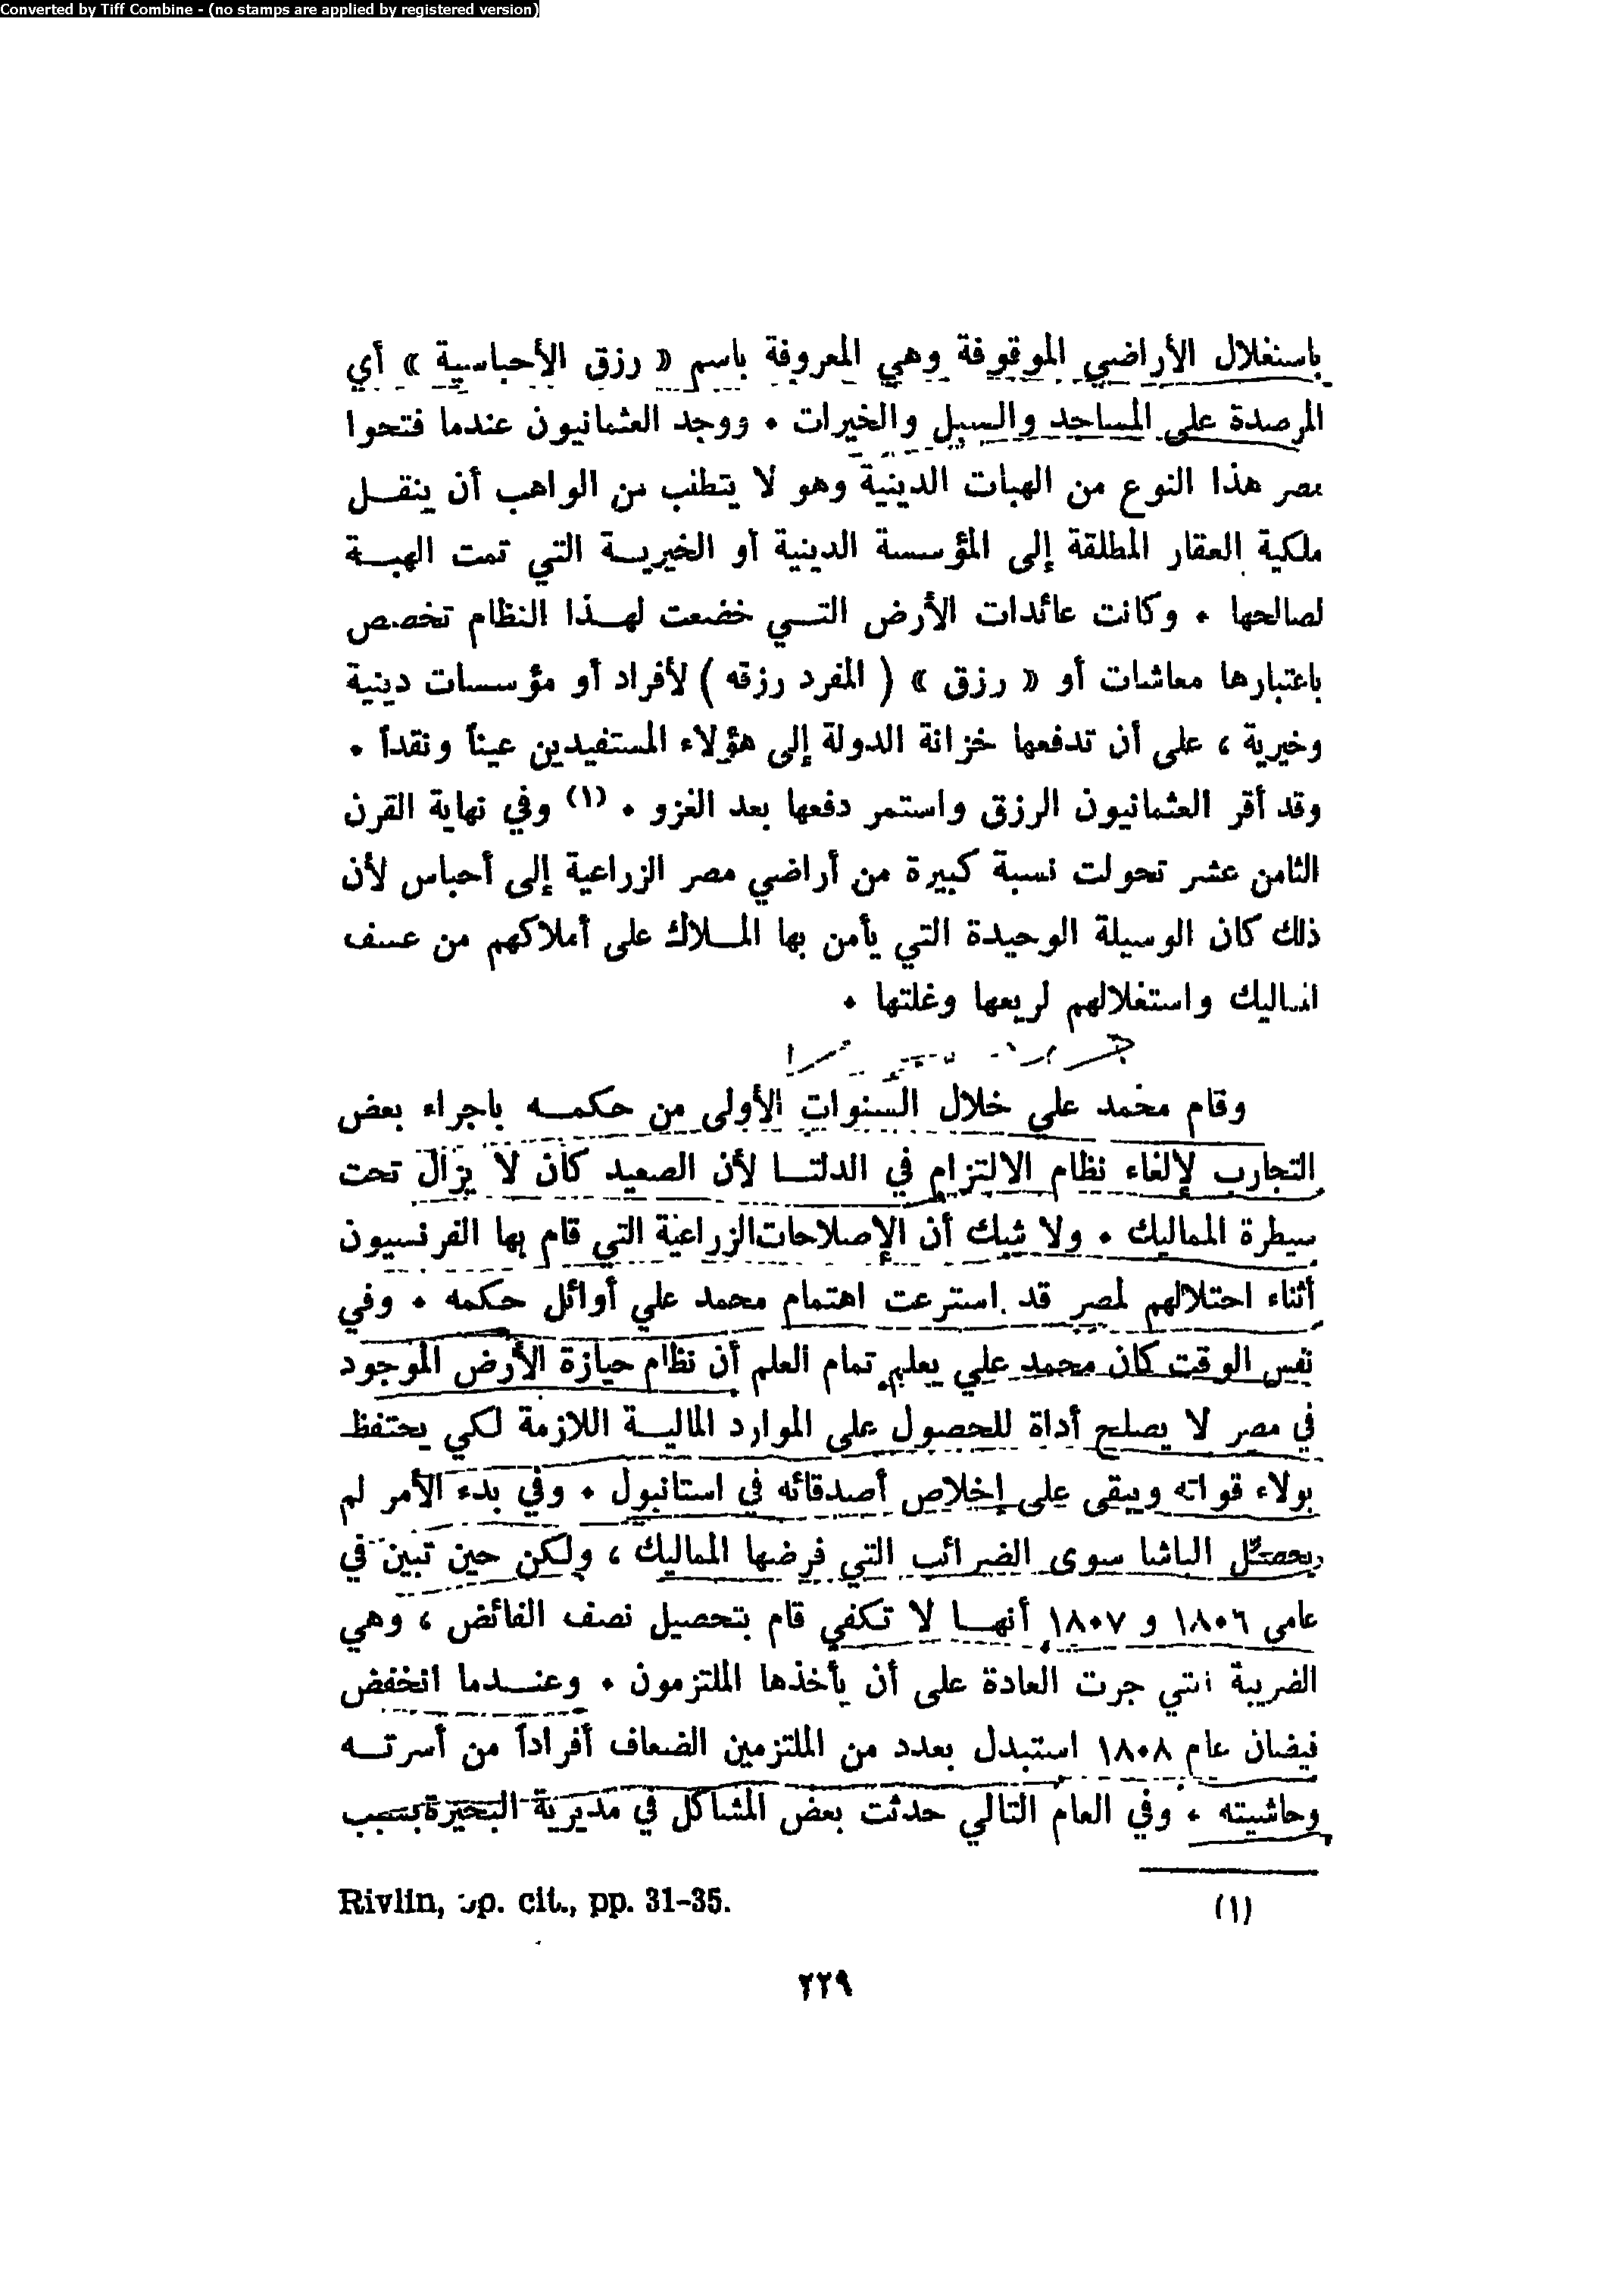 Converted by Tiff Combine - (no stamps are applied by registered version)
باستغلال الأراضي الموقوفة وهي المعروفة باسم « رزق الأحباسية » أي
المرصدة على المساجد والسبل والخيرات . ووجد العثمانيون عندما فتحوا
مصر هذا النوع من الهبات الدينية وهو لا يتطلب من الواهب أن ينقل
ملكية العقار المطلقة إلى المؤسسة الدينية أو الخيرية التي تمت الهبة
لصالحها . وكانت عائدات الأرض التي خضعت لهذا النظام تخصص
باعتبارها معاشات أو « رزق » ( المفرد رزقه ) لأفراد أو مؤسسات دينية
وخيرية ، على أن تدفعها خزانة الدولة إلى هؤلاء المستفيدين عيناً ونقداً .
وقد أقر العثمانيون الرزق واستمر دفعها بعد الغزو . (١) وفي نهاية القرن
الثامن عشر تحولت نسبة كبيرة من أراضي مصر الزراعية إلى أحباس لأن
ذلك كان الوسيلة الوحيدة التي يأمن بها الملاك على أملاكهم من عسف
المماليك واستغلالهم لريعها وغلتها .
وقام محمد علي خلال السنوات الأولى من حكمه باجراء بعض
التجارب لإلغاء نظام الالتزام في الدلتا لأن الصعيد كان لا يزال تحت
سيطرة المماليك . ولا شك أن الإصلاحات الزراعية التي قام بها الفرنسيون
أثناء احتلالهم لمصر قد استرعت اهتمام محمد علي أوائل حكمه . وفي
نفس الوقت كان محمد علي يعلم تمام العلم أن نظام حيازة الأرض الموجود
في مصر لا يصلح أداة للحصول على الموارد المالية اللازمة لكي يحتفظ
بولاء قواته ويبقى على إخلاص أصدقائه في استانبول . وفي بدء الأمر لم
يحصّل الباشا سوى الضرائب التي فرضها المماليك ، ولكن حين تبين في
عامي ١٨٠٦ و ١٨٠٧ أنها لا تكفي قام بتحصيل نصف الفائض ، وهي
الضريبة التي جرت العادة على أن يأخذها الملتزمون . وعندما انخفض
فيضان عام ١٨٠٨ استبدل بعدد من الملتزمين الضعاف أفراداً من أسرته
وحاشيته . وفي العام التالي حدثت بعض المشاكل في مديرية البحيرة بسبب
(١) Rivlin, op. cit., pp. 31-35.
٢٢٩